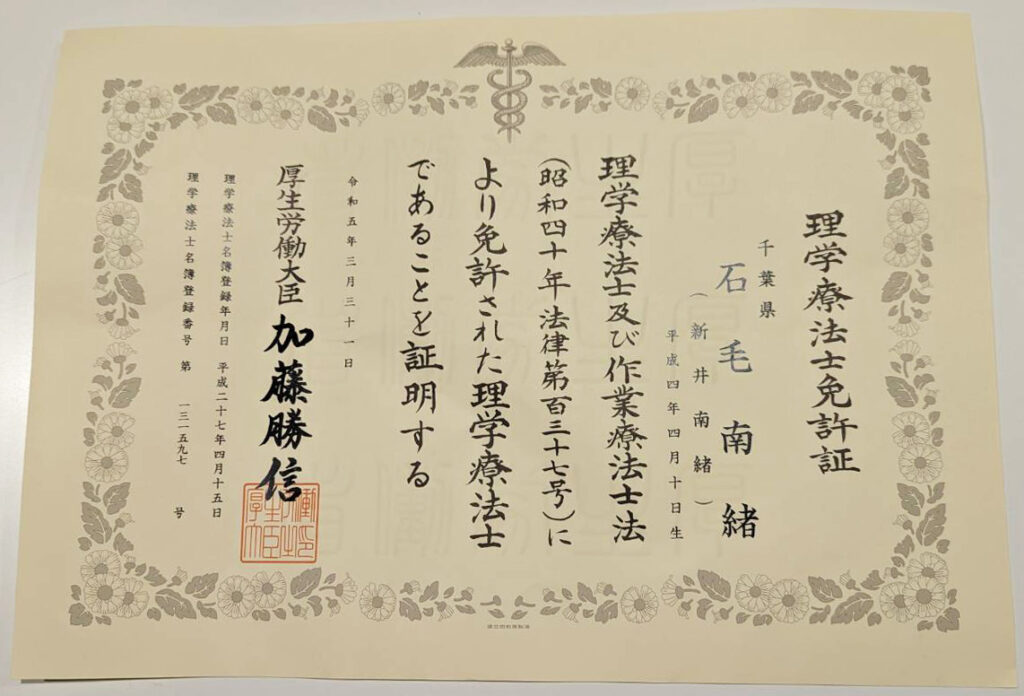 理学療法士免許証
千葉県
石毛南緒
（新井南緒）
平成四年四月十日生
理学療法士及び作業療法士法
（昭和四十年法律第百三十七号）に
より免許された理学療法士
であることを証明する
令和五年三月三十一日
厚生労働大臣 加藤勝信
理学療法士名簿登録年月日 平成二十七年四月十五日
理学療法士名簿登録番号 第 一三一五九七 号